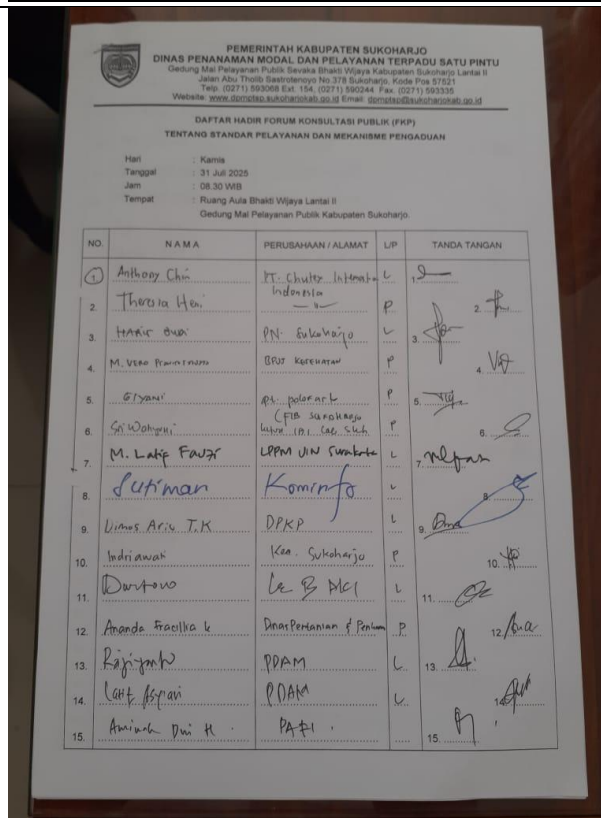 PEMERINTAH KABUPATEN SUKOHARJO
DINAS PENANAMAN MODAL DAN PELAYANAN TERPADU SATU PINTU
Gedung Mal Pelayanan Publik Sevaka Bhakti Wijaya Kabupaten Sukoharjo Lantai II
Jalan Abu Tholib Sastrotenoyo No.378 Sukoharjo, Kode Pos 57521
Telp. (0271) 593068 Ext. 154, (0271) 590244 Fax. (0271) 593335
Website: www.dpmptsp.sukoharjokab.go.id Email: dpmptsp@sukoharjokab.go.id
DAFTAR HADIR FORUM KONSULTASI PUBLIK (FKP)
TENTANG STANDAR PELAYANAN DAN MEKANISME PENGADUAN
Hari : Kamis
Tanggal : 31 Juli 2025
Jam : 08.30 WIB
Tempat : Ruang Aula Bhakti Wijaya Lantai II
Gedung Mal Pelayanan Publik Kabupaten Sukoharjo.
NO. NAMA PERUSAHAAN / ALAMAT L/P TANDA TANGAN
1 Anthony Chin PT. Chutex Indonesia L 1.
2. Theresia Heni P 2.
3. PN. Sukoharjo L 3.
4. M. VERO BPJS KESEHATAN P 4.
5. Giyani pt. P 5.
6. Sri Wahyuni SUKOHARJO P 6.
7. M. Latif Fauzi LPPM UIN Surakarta L 7.
8. Sutiman Kominfo L 8.
9. Dimas T.K DPKP L 9.
10. Indriawati Sukoharjo P 10.
11. Dartono L 11.
12. Ananda Dinas Pertanian & P 12.
13. PDAM L 13.
14. Latif PDAM L 14.
15. Aminah Dwi H. 15.